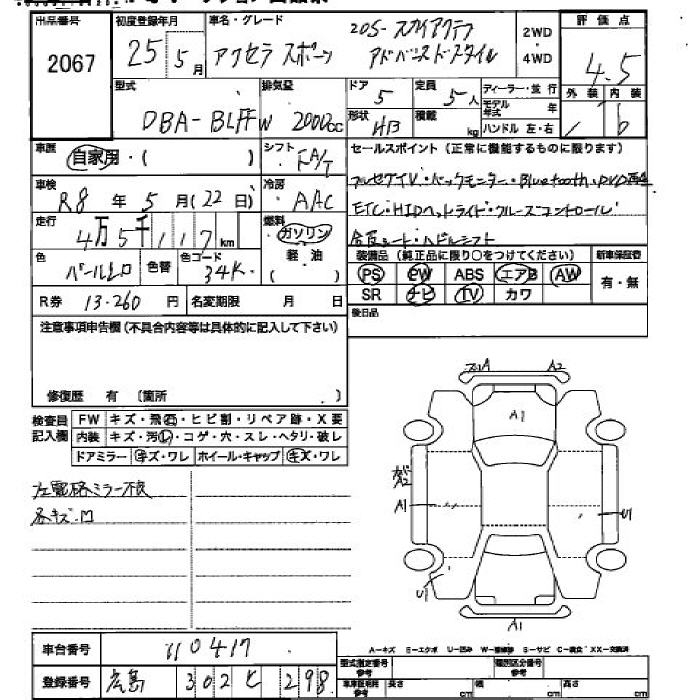 出品番号 初度登録年月 車名・グレード 20S-スカイアクティブ 2WD 評価点
2067 25年5月 アクセラスポーツ アドバンスドスタイル 4WD 4.5
型式 排気量 ドア 定員 ディーラー・並行 外装 内装
DBA-BLFFW 2000cc 5 5人 モデル年式 年
形状 HB 積載 kg ハンドル 左・右
車歴 自家用・( ) シフト FA/T セールスポイント(正常に機能するものに限ります)
車検 R8年5月(22日) 冷房 AAC フルセグTV・バックモニター・Bluetooth・DVD再生
走行 4万5千117km 燃料 ガソリン ETC・HIDヘッドライト・クルーズコントロール
軽油
( )
色 パールシロ 色替 色コード 34K 装備品(純正品に限り○をつけてください) 新車保証書
PS PW ABS エアB AW 有・無
R券 13.260円 名変期限 月 日 SR ナビ TV カワ
注意事項申告欄(不具合内容等は具体的に記入して下さい) 後日品
修復歴 有 〔箇所 〕
検査員記入欄 FW キズ・飛石・ヒビ割・リペア跡・X要
内装 キズ・汚レ・コゲ・穴・スレ・ヘタリ・破レ
ドアミラー キズ・ワレ ホイール・キャップ キズ・ワレ
各キズ.凹
A1
A2
A1
A2
A1
U1
U1
A1
車台番号 110417
登録番号 広島 302 ヒ 298
A-キズ E-エクボ U-凹み W-補修跡 S-サビ C-腐食 XX-交換済
型式指定番号 類別区分番号
参考 長さ cm 幅 cm 高さ cm